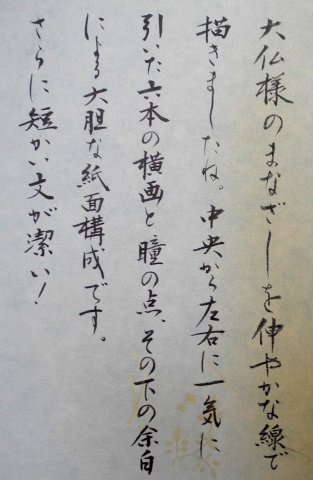 大仏様のまなざしを伸やかな線で
描きましたね。中央から左右に一気に
引いた六本の横画と瞳の点、その下の余白
による大胆な紙面構成です。
さらに短かい文が潔い！